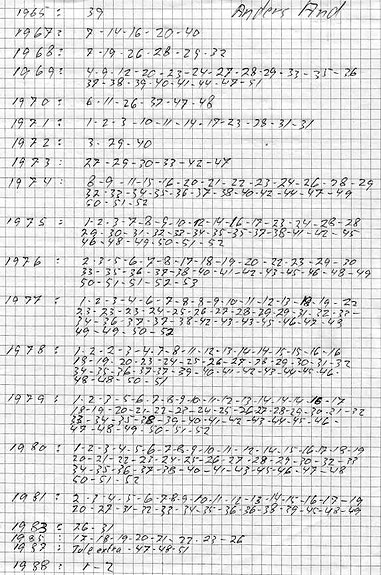 1965: 39 Anders And
1967: 7-14-16-20-40
1968: 7-19-26-28-29-32
1969: 4-9-12-20-23-24-27-28-29-33-35-36
37-38-39-40-41-44-47-51
1970: 6-11-26-37-47-48
1971: 1-2-3-10-11-14-17-23-28-31-31
1972: 3-29-40
1973: 27-29-30-33-42-47
1974: 8-9-11-15-16-20-21-22-23-24-26-28-29
32-33-34-35-36-37-38-40-42-44-47-49
50-51-52
1975: 1-2-3-7-8-9-10-12-14-16-17-23-24-28-28
29-30-31-32-32-34-35-35-37-38-41-42-45
46-48-49-50-51-52
1976: 2-3-5-6-7-8-17-18-19-20-22-23-29-30
33-35-36-37-38-40-41-42-43-45-46-48-49
50-51-51-52-53
1977: 1-2-3-4-6-7-8-8-9-10-11-12-13-18-19-22
23-23-23-24-25-26-27-28-29-29-31-32-33-
34-36-37-37-38-42-43-43-45-46-47-48
49-49-50-52
1978: 1-2-2-3-4-7-8-11-12-13-14-14-15-15-16-16
18-19-20-23-24-25-26-27-28-29-30-31-32
34-35-36-37-37-39-40-41-42-43-44-45-46-
48-48-50-51
1979: 1-2-3-5-6-7-8-9-10-11-12-13-14-14-16-17
18-19-20-21-22-23-24-25-26-27-28-29-30-31-32
33-34-35-38-39-40-41-42-43-44-45-46-
47-48-49-50-51-52
1980: 1-2-3-4-5-6-7-8-9-10-11-12-14-15-16-17-18-19
20-21-22-23-24-25-26-27-28-29-30-32-33
34-35-36-37-38-40-41-43-45-46-47-48
50-51-52
1981: 2-3-4-5-6-7-8-9-10-11-12-13-14-15-16-17-19
20-27-31-32-33-34-35-36-36-38-39-45-48-49
1983: 26-31
1985: 17-18-19-20-21-22-23-26
1987: Jule extra-47-48-51
1988: 1-2